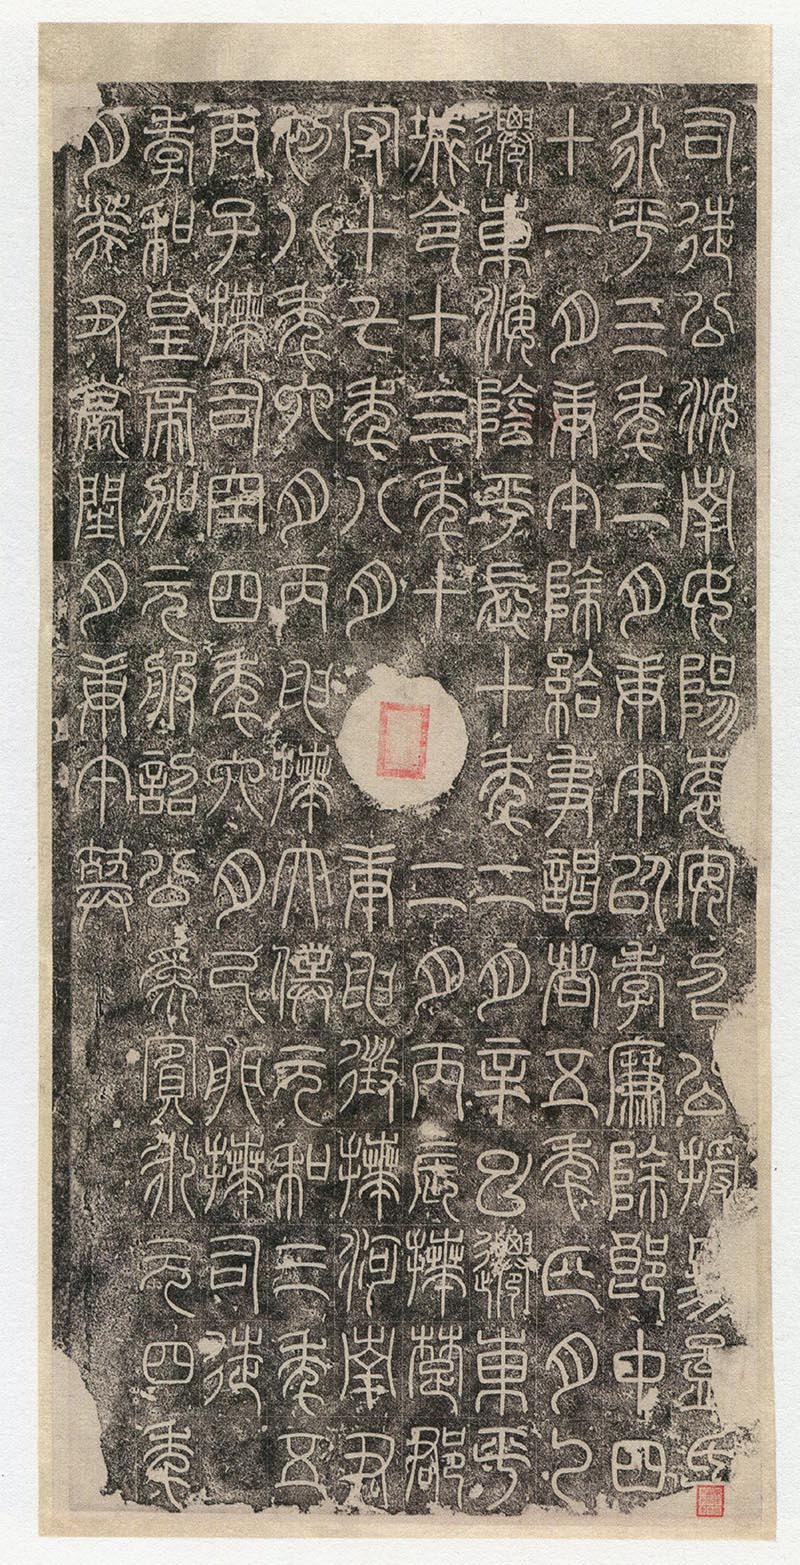 司徒公汝南女陽袁安召公授易孟氏
永平三年二月庚午以孝廉除郎中四
十一月庚午除給事謁者五年正月乙
遷東海陰平長十年二月辛巳遷東平
城令十三年十二月丙辰拜楚郡
守十七年八月庚申徵拜河南尹
初八年六月丙申拜太僕元和三年五
丙子拜司空四年六月己卯拜司徒
孝和皇帝加元服詔公為賓永元四年
月癸丑薨閏月庚午葬